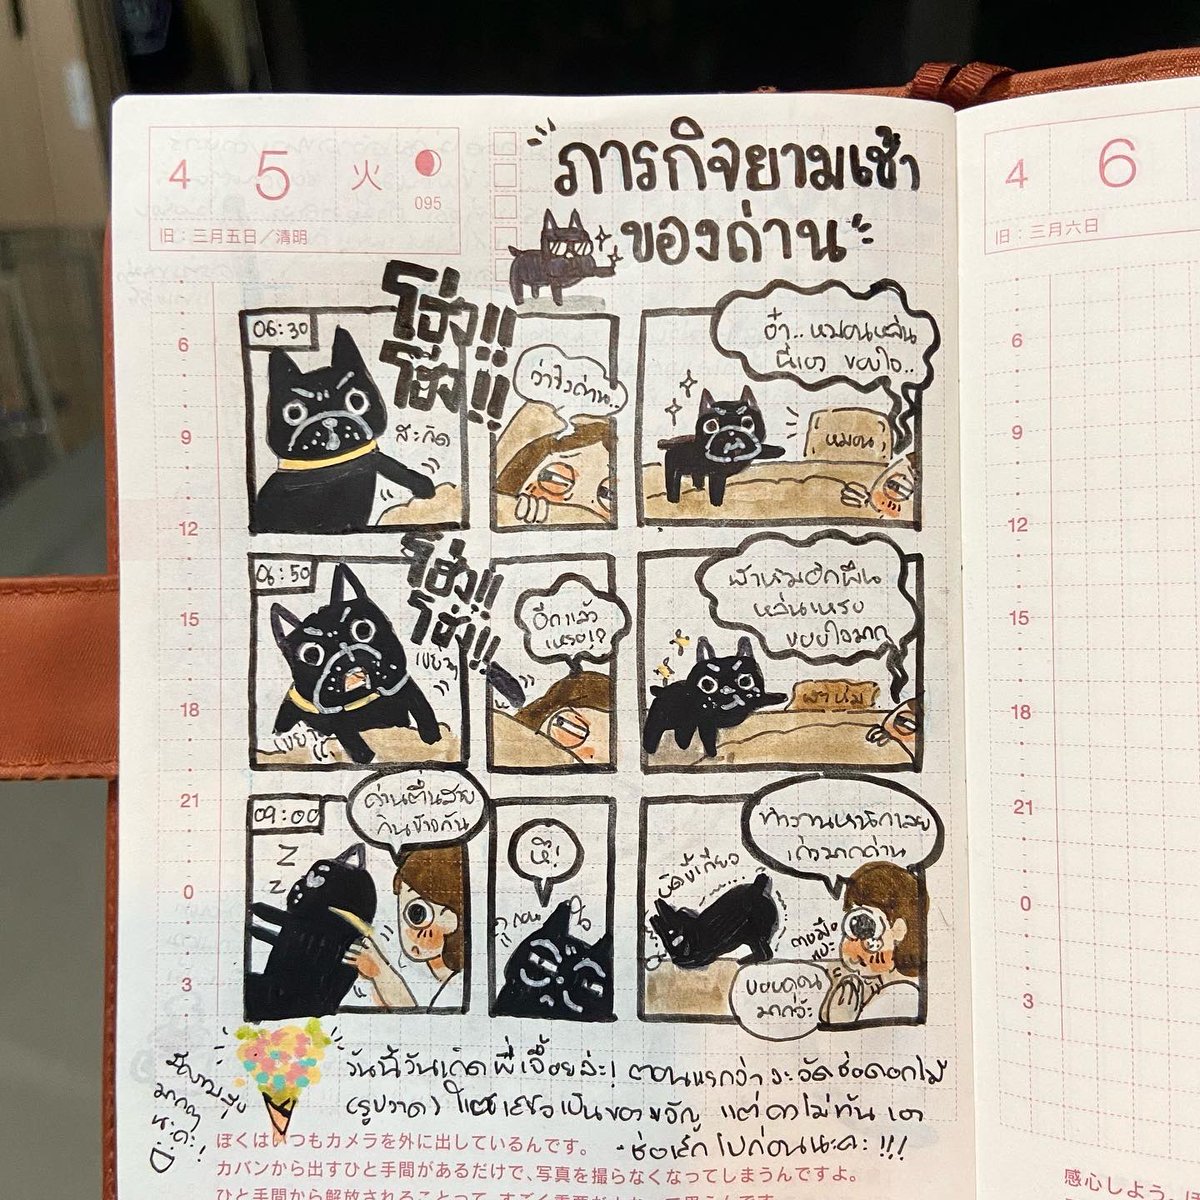 4 5 火
095
旧：三月五日／清明
ภารกิจยามเช้า
ของถ่าน
4 6
旧：三月六日
06:30
โฮ่ง!!
โฮ่ง!!
สะกิด
ว่าไงถ่าน..
อ๋า..หมอนหล่น
นี่เอง ขอบใจ..
หมอน
06:50
โฮ่ง!!
โฮ่ง!!
เขย่า
เขย่า
อีกแล้ว
เหรอ!?
ผ้าห่มอีกผืน
หล่นเหรอ
ขอบใจมาก
ผ้าห่ม
09:00
Z
Z
ถ่านตื่นสาย
กินข้าวกัน
หึ!
บิดขี้เกียจ
ทำงานหนักเลย
เก่งมากถ่าน
ขอบคุณ
มากจ้ะ
วันนี้วันเกิดพี่เจี๊ยบล่ะ! ตอนแรกว่าจะจัดช่อดอกไม้
(รูปวาด) ให้เธอเป็นของขวัญ แต่คงไม่ทัน เอา
ช่อเล็กไปก่อนนะคะ!!!
มากๆ
นะคะ!
:D
6
9
12
15
18
21
0
3
6
9
12
15
18
21
0
3
ぼくはいつもカメラを外に出しているんです。
カバンから出すひと手間があるだけで、写真を撮らなくなってしまうんですよ。
感心しよう。